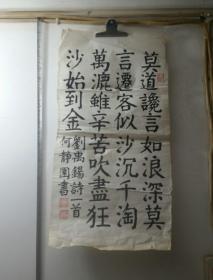 莫道讒言如浪深莫
言遷客似沙沉千淘
萬漉雖辛苦吹盡狂
沙始到金
劉禹錫詩一首
何靜園書